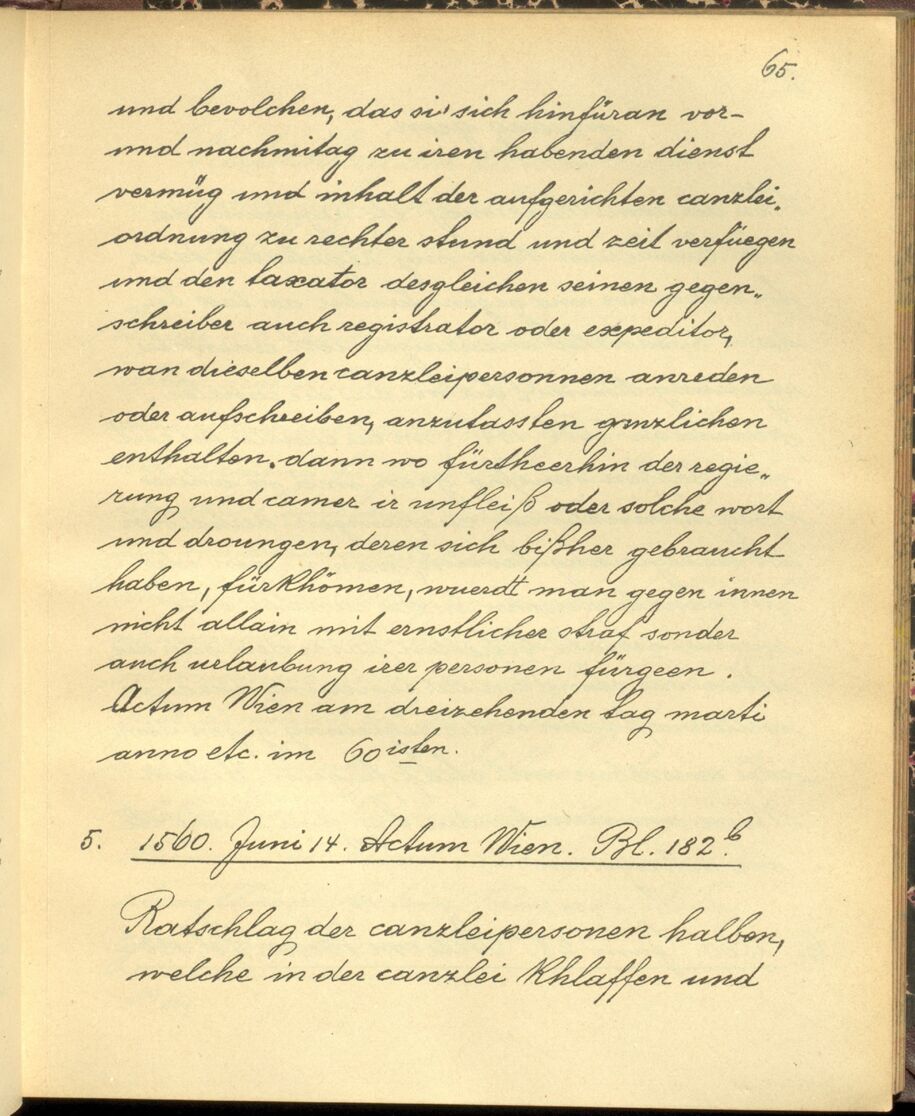 65.
und bevolchen, das si sich hinfüran vor-
und nachmitag zu iren habenden dienst
vermüg und inhalt der aufgerichten canzlei„
ordnung zu rechter stund und zeit verfüegen
und den taxator desgleichen seinen gegen„
schreiber auch registrator oder expeditor,
wan dieselben canzleipersonnen anreden
oder aufschreiben, anzutassten genzlichen
enthalten. dann wo fürtheerhin der regie„
rung und camer ir unfleiß oder solche wort
und droungen, deren sich bißher gebraucht
haben, fürkhömen, wuerdt man gegen innen
nicht allain mit ernstlicher straf sonder
auch urlaubung irer personen fürgeen.
Actum Wien am dreizehenden tag marti
anno etc. im 60isten.
5. 1560. Juni 14. Actum Wien. Bl. 182b.
Ratschlag der canzleipersonen halben,
welche in der canzlei khlaffen und